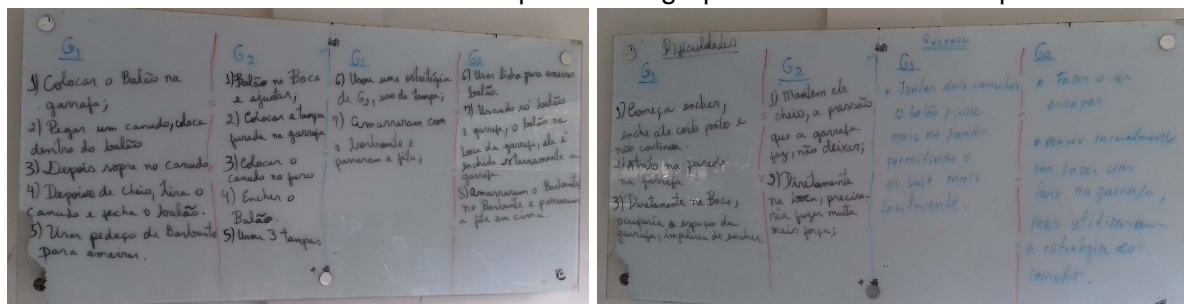 G1
1) Colocar o Balão na
garrafa;
2) Pegar um canudo, coloca
dentro do balão
3) Depois sopra no canudo
4) Depois de cheio, tira o
canudo e fecha o balão.
5) Usar pedaço de Barbante
para amarrar.
G2
1) Balão na Boca
e ajustar;
2) Colocar a tampa
furada na garrafa
3) Colocar o
canudo no furo
4) Encher o
Balão.
5) Usou 3 tampas
G1
6) Usou uma estratégia
de G2, uso da tampa;
7) Amarraram com
o barbante e
passaram a fita;
G2
6) Usar linha para amarrar
balão.
7) Usando só balão
e garrafa, o balão na
boca da garrafa, ela é
enchida externamente a
garrafa.
8) Amarraram o Barbante
no Barbante e passaram
a fita em cima.
Dificuldades
G1
1) Começa encher,
enche até certo ponto e
não continua.
2) Atrito na parede
na garrafa
3) Diretamente na Boca,
ocuparia o espaço da
garrafa, impediria de encher
G2
1) Mantem ele
cheio, a pressão
que a garrafa
faz, não deixar;
2) Diretamente
na boca, precisa-
ria fazer muita
mais força;
Sucesso
G1
* Juntar dois canudos
o balão
mais no fundo
permitindo o
ar sair mais
facilmente.
G2
* Fazer o ar
escapar
* pensar inicialmente
em fazer um
furo na garrafa,
mas utilizaram
a estratégia do
canudo.